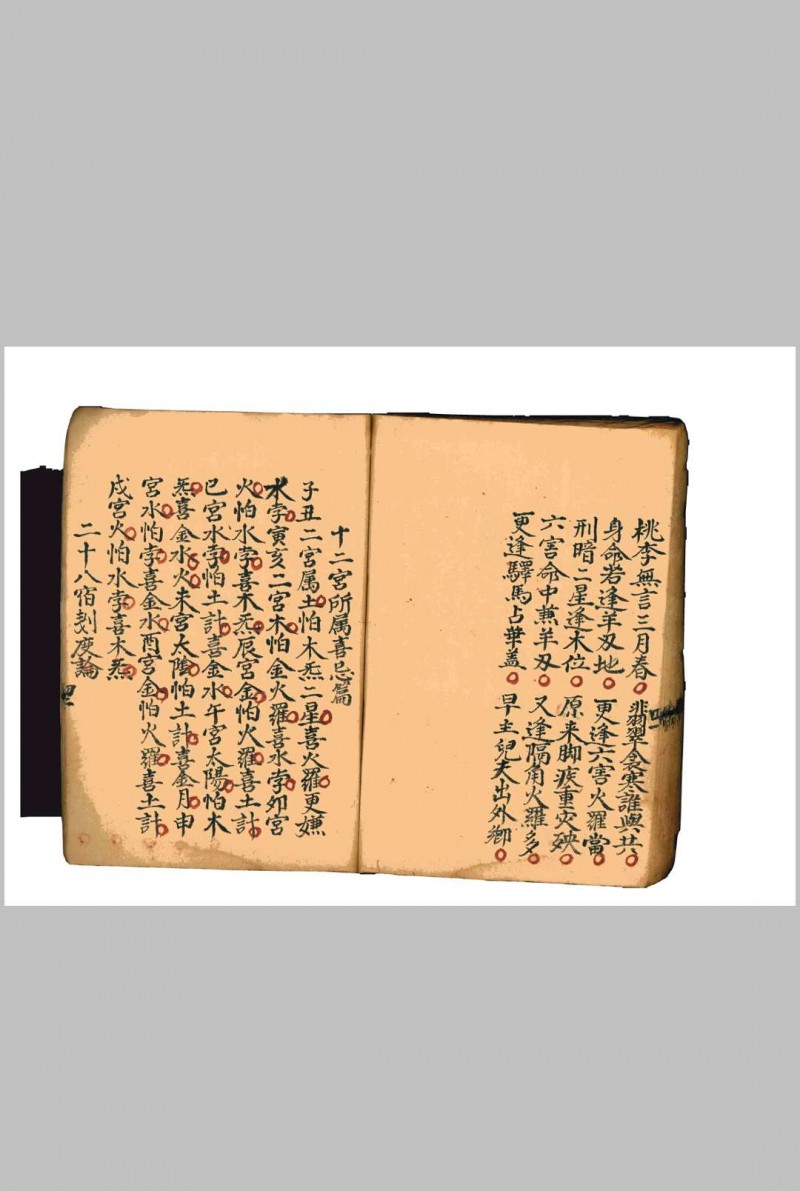 桃李無言三月春 翡翠衾寒誰與共
身命若逢羊刃地 更逢六害火羅當
刑暗二星逢木位 原来脚疾重灾殃
六害命中兼羊刃 又逢隔角火羅多
更逢驛馬占華盖 早主兒夫出外鄉
十二宮所属喜忌篇
子丑二宮属土怕木炁二星喜火羅更嫌
水孛寅亥二宮木怕金火羅喜水孛卯宮
火怕水孛喜木炁辰宮金怕火羅喜土計
巳宮水孛怕土計喜金水午宮太陽怕木
炁喜金水火未宮太陰怕土計喜金月申
宮水怕孛喜金水酉宮金怕火羅喜土計
戌宮火怕水孛喜木炁
二十八宿刻度論